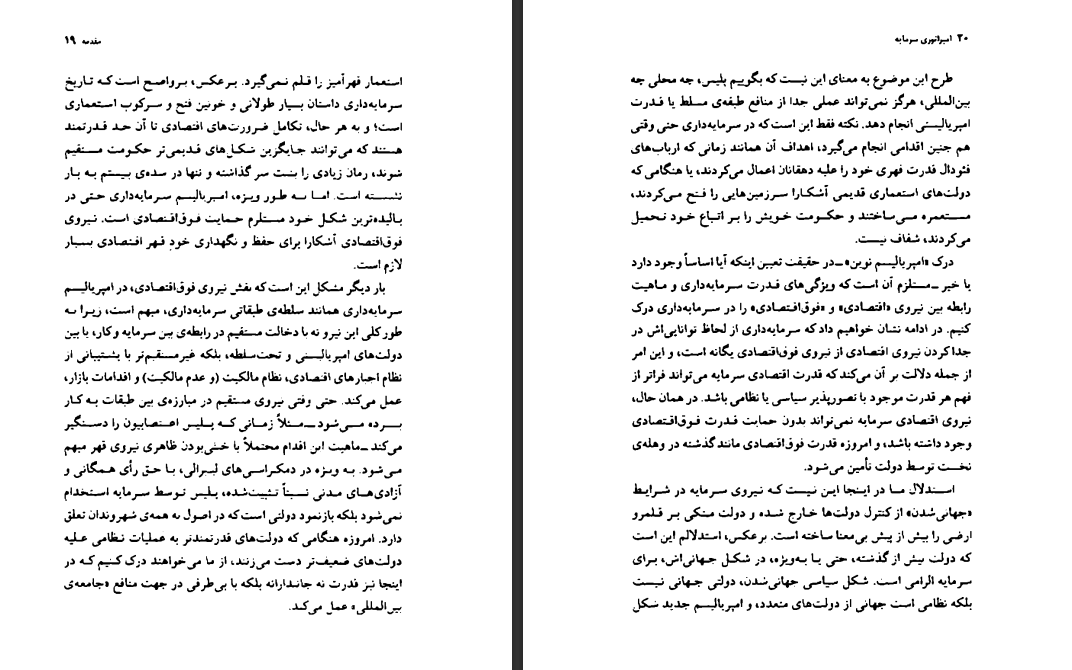 مقدمه ۱۹
استعمار قهرآمیز را قلم نمی‌گیرد. برعکس، پرواضح است که تاریخ
سرمایه‌داری داستان بسیار طولانی و خونین فتح و سرکوب استعماری
است؛ و به هر حال، تکامل ضرورت‌های اقتصادی تا آن حد قدرتمند
هستند که می‌توانند جایگزین شکل‌های قدیمی‌تر حکومت مستقیم
شوند، زمان زیادی را پشت سر گذاشته و تنها در سده‌ی بیستم به بار
نشسته است. اما به طور ویژه، امپریالیسم سرمایه‌داری حتی در
بالیده‌ترین شکل خود مستلزم حمایت فوق‌اقتصادی است. نیروی
فوق‌اقتصادی آشکارا برای حفظ و نگهداری خودِ قهر اقتصادی بسیار
لازم است.
بار دیگر مشکل این است که نقش نیروی فوق‌اقتصادی، در امپریالیسم
سرمایه‌داری همانند سلطه‌ی طبقاتی سرمایه‌داری، مبهم است، زیرا به
طور کلی این نیرو نه با دخالت مستقیم در رابطه‌ی بین سرمایه و کار، یا بین
دولت‌های امپریالیستی و تحت‌سلطه، بلکه غیرمستقیم‌تر با پشتیبانی از
نظام اجبارهای اقتصادی، نظام مالکیت (و عدم مالکیت) و اقدامات بازار،
عمل می‌کند. حتی وقتی نیروی مستقیم در مبارزه‌ی بین طبقات به کار
برده می‌شود ــ مثلاً زمانی که پلیس اعتصابیون را دستگیر
می‌کند ــ ماهیت این اقدام محتملاً با خنثی‌بودن ظاهری نیروی قهر مبهم
می‌شود. به ویژه در دمکراسی‌های لیبرالی، با حق رأی همگانی و
آزادی‌های مدنی نسبتاً تثبیت‌شده، پلیس توسط سرمایه استخدام
نمی‌شود بلکه بازنمود دولتی است که در اصول به همه‌ی شهروندان تعلق
دارد. امروزه هنگامی که دولت‌های قدرتمندتر به عملیات نظامی علیه
دولت‌های ضعیف‌تر دست می‌زنند، از ما می‌خواهند درک کنیم که در
اینجا نیز قدرت نه جانبدارانه بلکه با بی‌طرفی در جهت منافع «جامعه‌ی
بین‌المللی» عمل می‌کند.
۲۰ امپراتوری سرمایه
طرح این موضوع به معنای این نیست که بگوییم پلیس، چه محلی چه
بین‌المللی، هرگز نمی‌تواند عملی جدا از منافع طبقه‌ی مسلط یا قدرت
امپریالیستی انجام دهد. نکته فقط این است که در سرمایه‌داری حتی وقتی
هم چنین اقدامی انجام می‌گیرد، اهداف آن همانند زمانی که ارباب‌های
فئودال قدرت قهری خود را علیه دهقانان اعمال می‌کردند، یا هنگامی که
دولت‌های استعماری قدیمی آشکارا سرزمین‌هایی را فتح می‌کردند،
مستعمره می‌ساختند و حکومت خویش را بر اتباع خود تحمیل
می‌کردند، شفاف نیست.
درک «امپریالیسم نوین» ــ در حقیقت تعیین اینکه آیا اساساً وجود دارد
یا خیر ــ مستلزم آن است که ویژگی‌های قدرت سرمایه‌داری و ماهیت
رابطه بین نیروی «اقتصادی» و «فوق‌اقتصادی» را در سرمایه‌داری درک
کنیم. در ادامه نشان خواهیم داد که سرمایه‌داری از لحاظ توانایی‌اش در
جدا کردن نیروی اقتصادی از نیروی فوق‌اقتصادی یگانه است، و این امر
از جمله دلالت بر آن می‌کند که قدرت اقتصادی سرمایه می‌تواند فراتر از
فهم هر قدرت موجود یا تصورپذیر سیاسی یا نظامی باشد. در همان حال،
نیروی اقتصادی سرمایه نمی‌تواند بدون حمایت قدرت فوق‌اقتصادی
وجود داشته باشد، و امروزه قدرت فوق‌اقتصادی مانند گذشته در وهله‌ی
نخست توسط دولت تأمین می‌شود.
استدلال ما در اینجا این نیست که نیروی سرمایه در شرایط
«جهانی‌شدن» از کنترل دولت‌ها خارج شده و دولت متکی بر قلمرو
ارضی را بیش از پیش بی‌معنا ساخته است. برعکس، استدلالم این است
که دولت بیش از گذشته، حتی یا به‌ویژه، در شکل جهانی‌اش، برای
سرمایه الزامی است. شکل سیاسی جهانی‌شدن، دولتی جهانی نیست
بلکه نظامی است جهانی از دولت‌های متعدد، و امپریالیسم جدید شکل